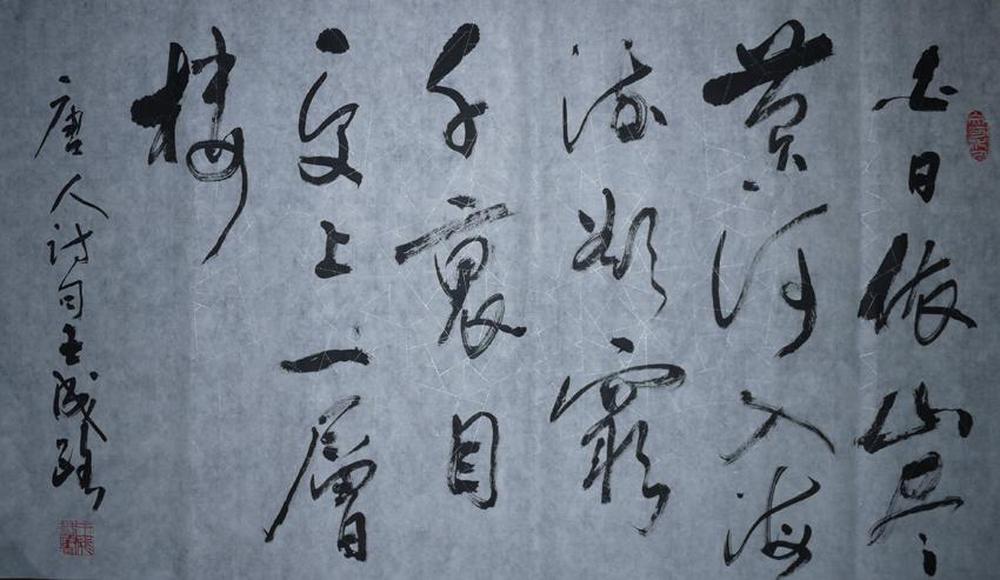 白日依山尽
黄河入海
流欲窮
千裏目
更上一層
楼
唐人诗句王成